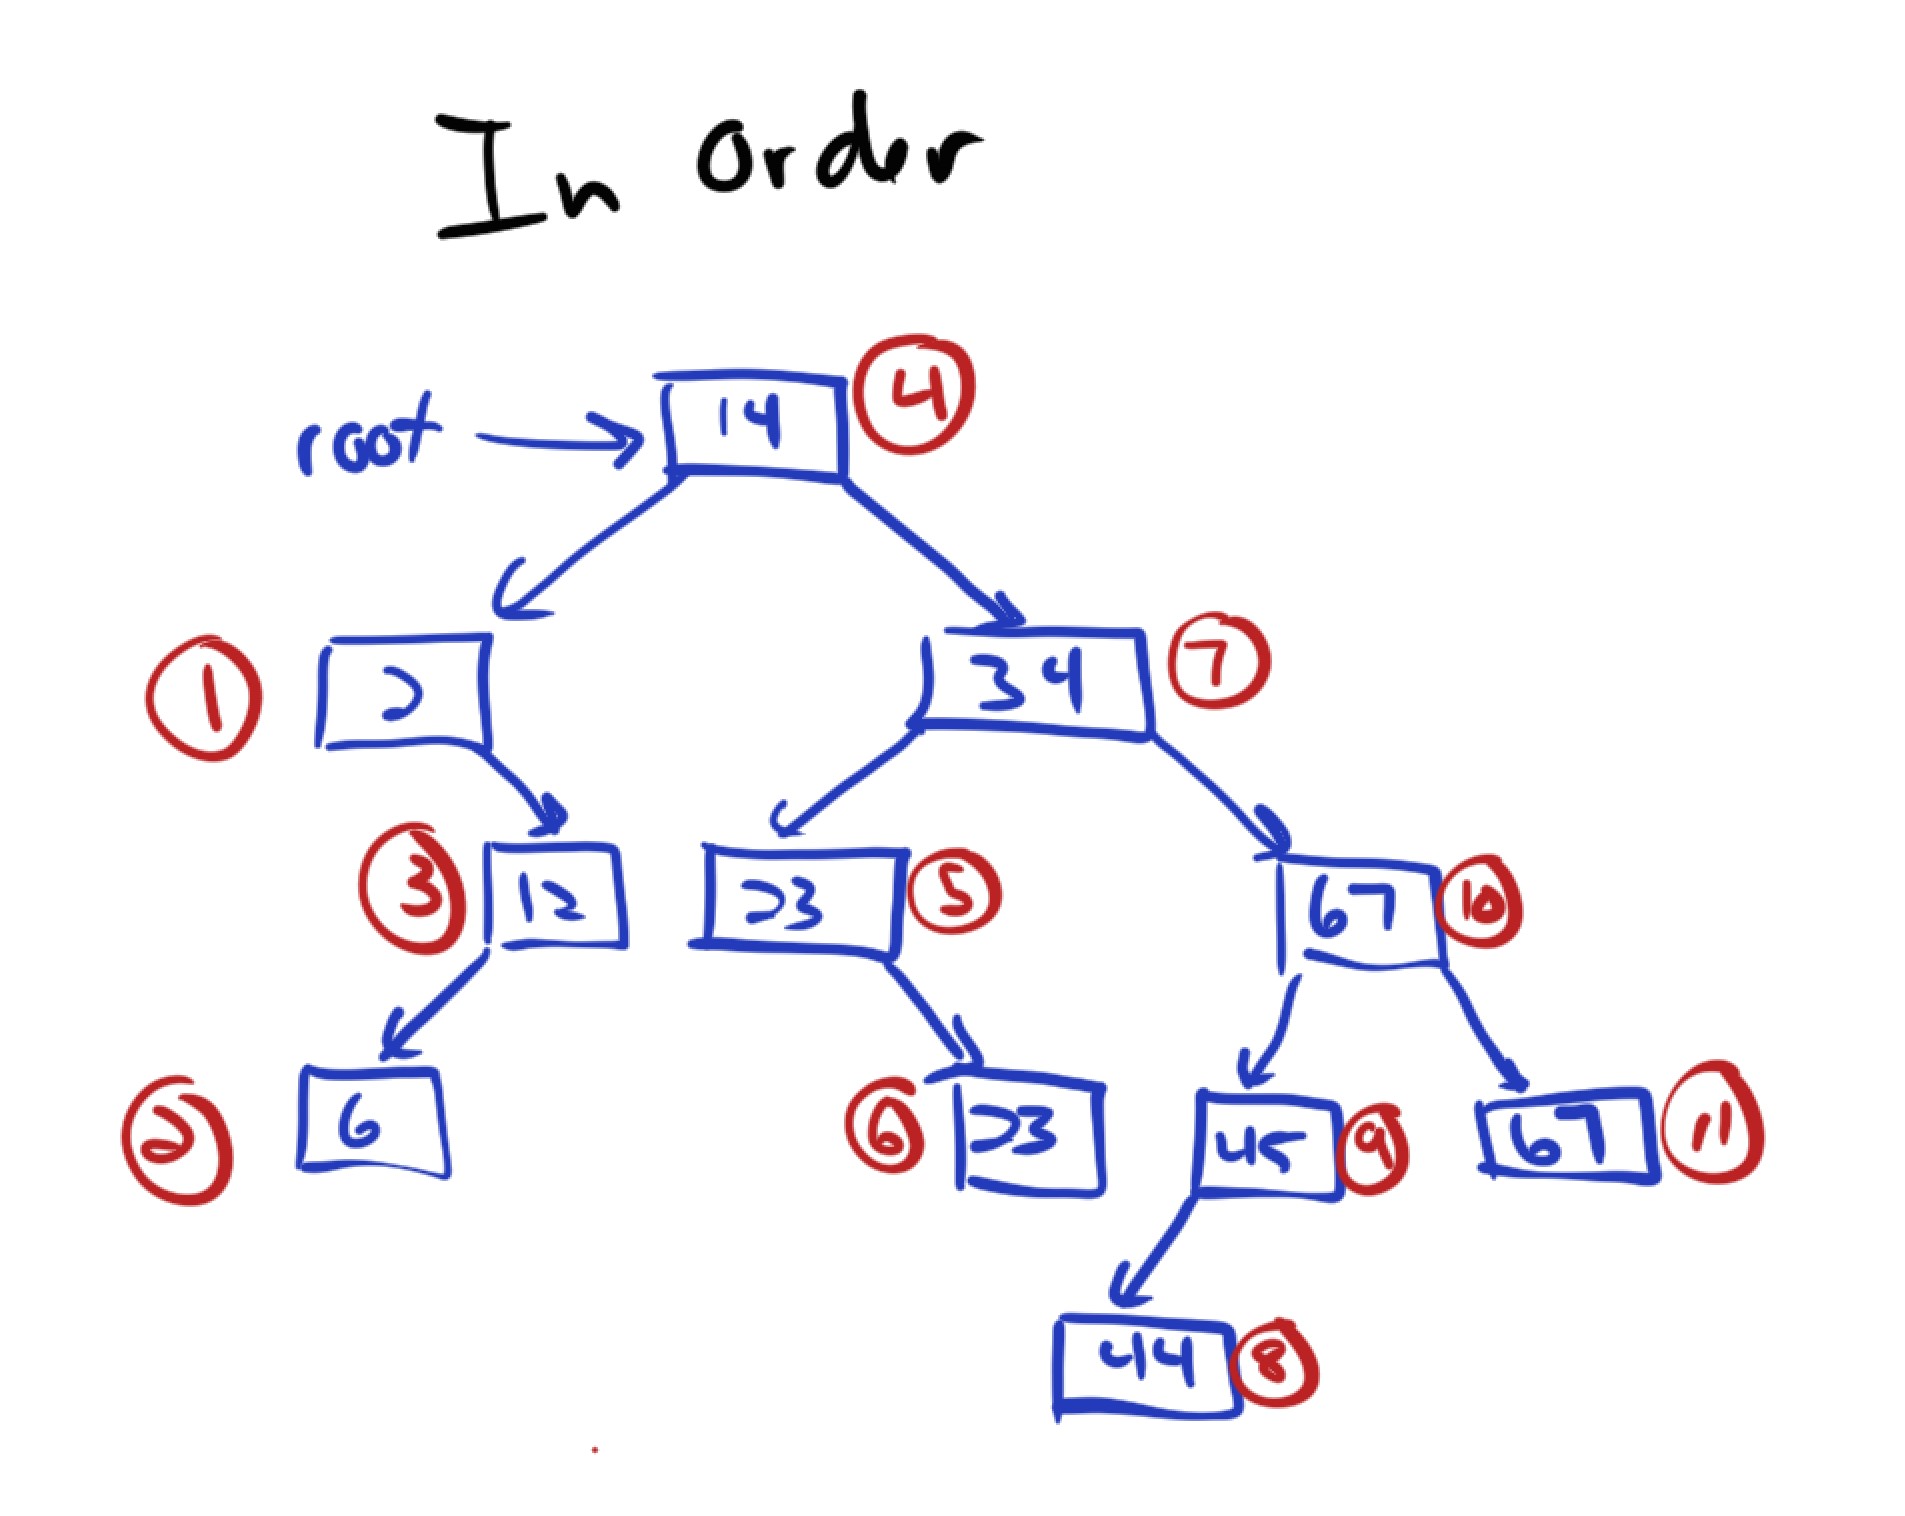 In Order
root 14 4
1 2 34 7
3 12 23 5 67 10
2 6 6 23 45 9 67 11
44 8